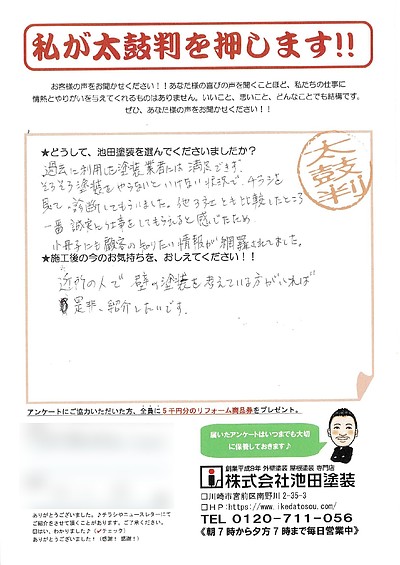 私が太鼓判を押します!!
お客様の声をお聞かせください！！あなた様の喜びの声を聞くことほど、私たちの仕事に
情熱とやりがいを与えてくれるものはありません。いいこと、悪いこと、どんなことでも結構です。
ぜひ、あなた様の声をお聞かせください！！
★どうして、池田塗装を選んでくださいましたか？
太鼓判
過去に利用した塗装業者には満足できず、
そろそろ塗装をやらないといけない状況で、チラシを
見て、診断してもらいました。他3社とも比較したところ
一番誠実な仕事をしてもらえると感じたため。
小冊子にも顧客の知りたい情報が網羅されてました。
★施工後の今のお気持ちを、おしえてください！！
近所の人で壁の塗装を考えている方がいれば
是非、紹介したいです。
アンケートにご協力いただいた方、全員に５千円分のリフォーム商品券をプレゼント。
届いたアンケートはいつまでも大切
に保管しておきます♪
創業平成9年 外壁塗装 屋根塗装 専門店
株式会社池田塗装
□川崎市宮前区南野川2-35-3
□HP:https://www.ikedatosou.com/
TEL 0120-711-056
《朝7時から夕方7時まで毎日営業中》
ありがとうございました。♪チラシやニュースレターにて
ご紹介をさせて頂くことがあります。ご了承ください。
☑はい。わかりました♪（✔チェック）
ありがとうございました！（感謝！感謝！）